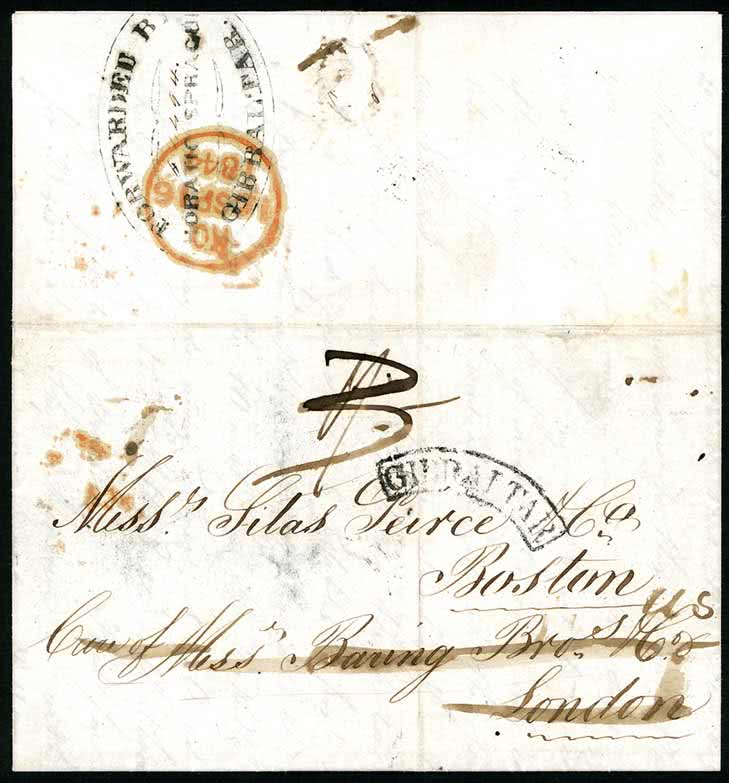 FORWARDED B
HORATIO SPRAGUE
GIBRALTAR.
SP 6
184
GIBRALTAR
Mess.rs Silas Peirce & Co.
Boston
U S
Care of Mess.rs Baring Bro.s & Co.
London